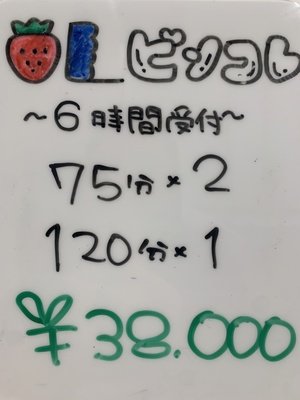 ピンコレ
~6時間受付~
75分×2
120分×1
¥38.000